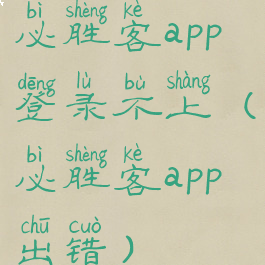 bì shèng kè
必胜客app
dēng lù bù shàng
登录不上（
bì shèng kè
必胜客app
chū cuò
出错）